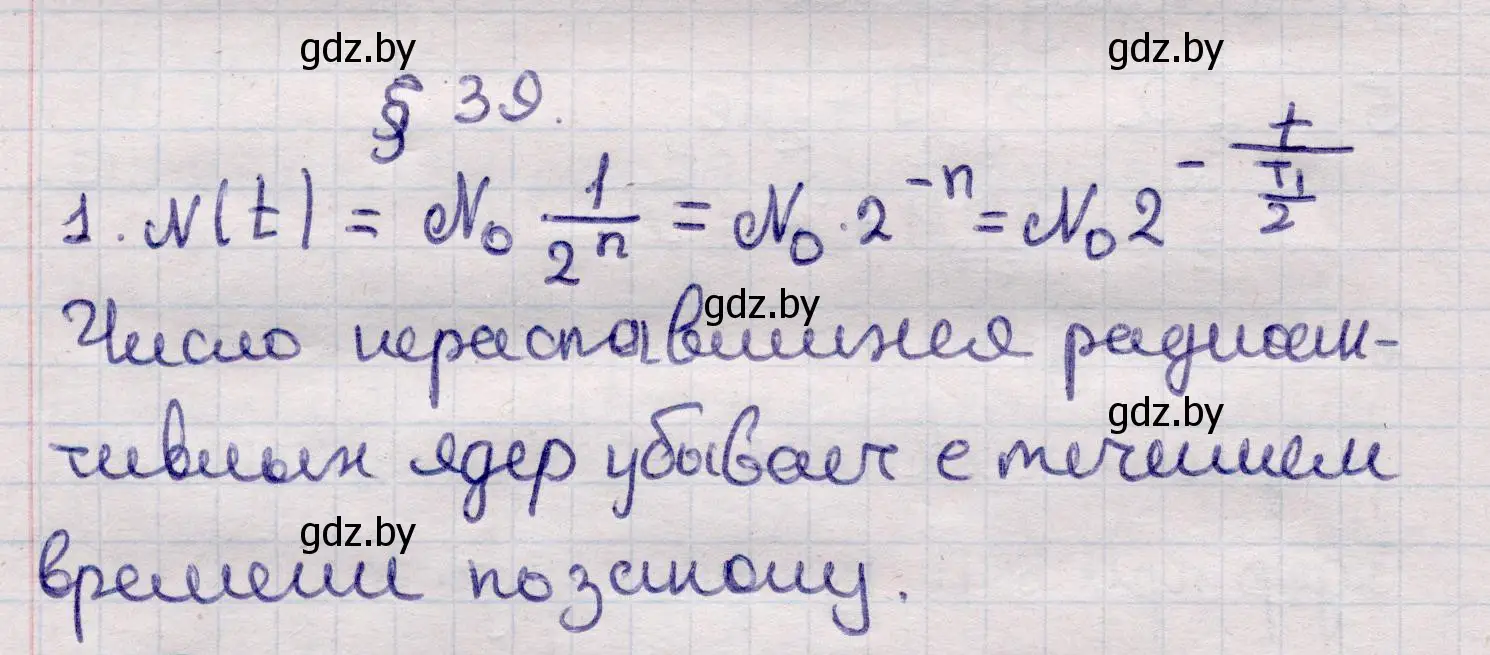 gdz.by gdz.by
§ 39.
1. N(t) = N₀ 1/2ⁿ = N₀ · 2⁻ⁿ = N₀ 2^(- t / (T 1/2))
gdz.by
Число нераспавшихся радиоак-
gdz.by
тивных ядер убывает с течением
gdz.by
времени по закону.